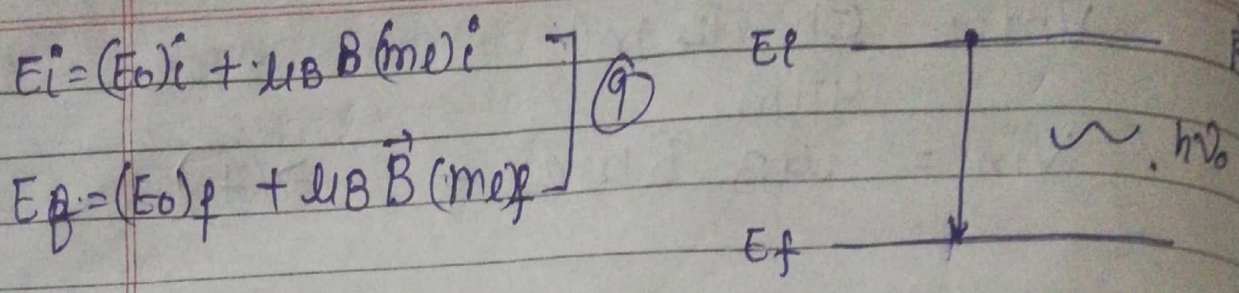 Ei = (E₀)i + μB B (me)i
Ef = (E₀)f + μB B⃗ (me)f
9
Ei
hν₀
Ef